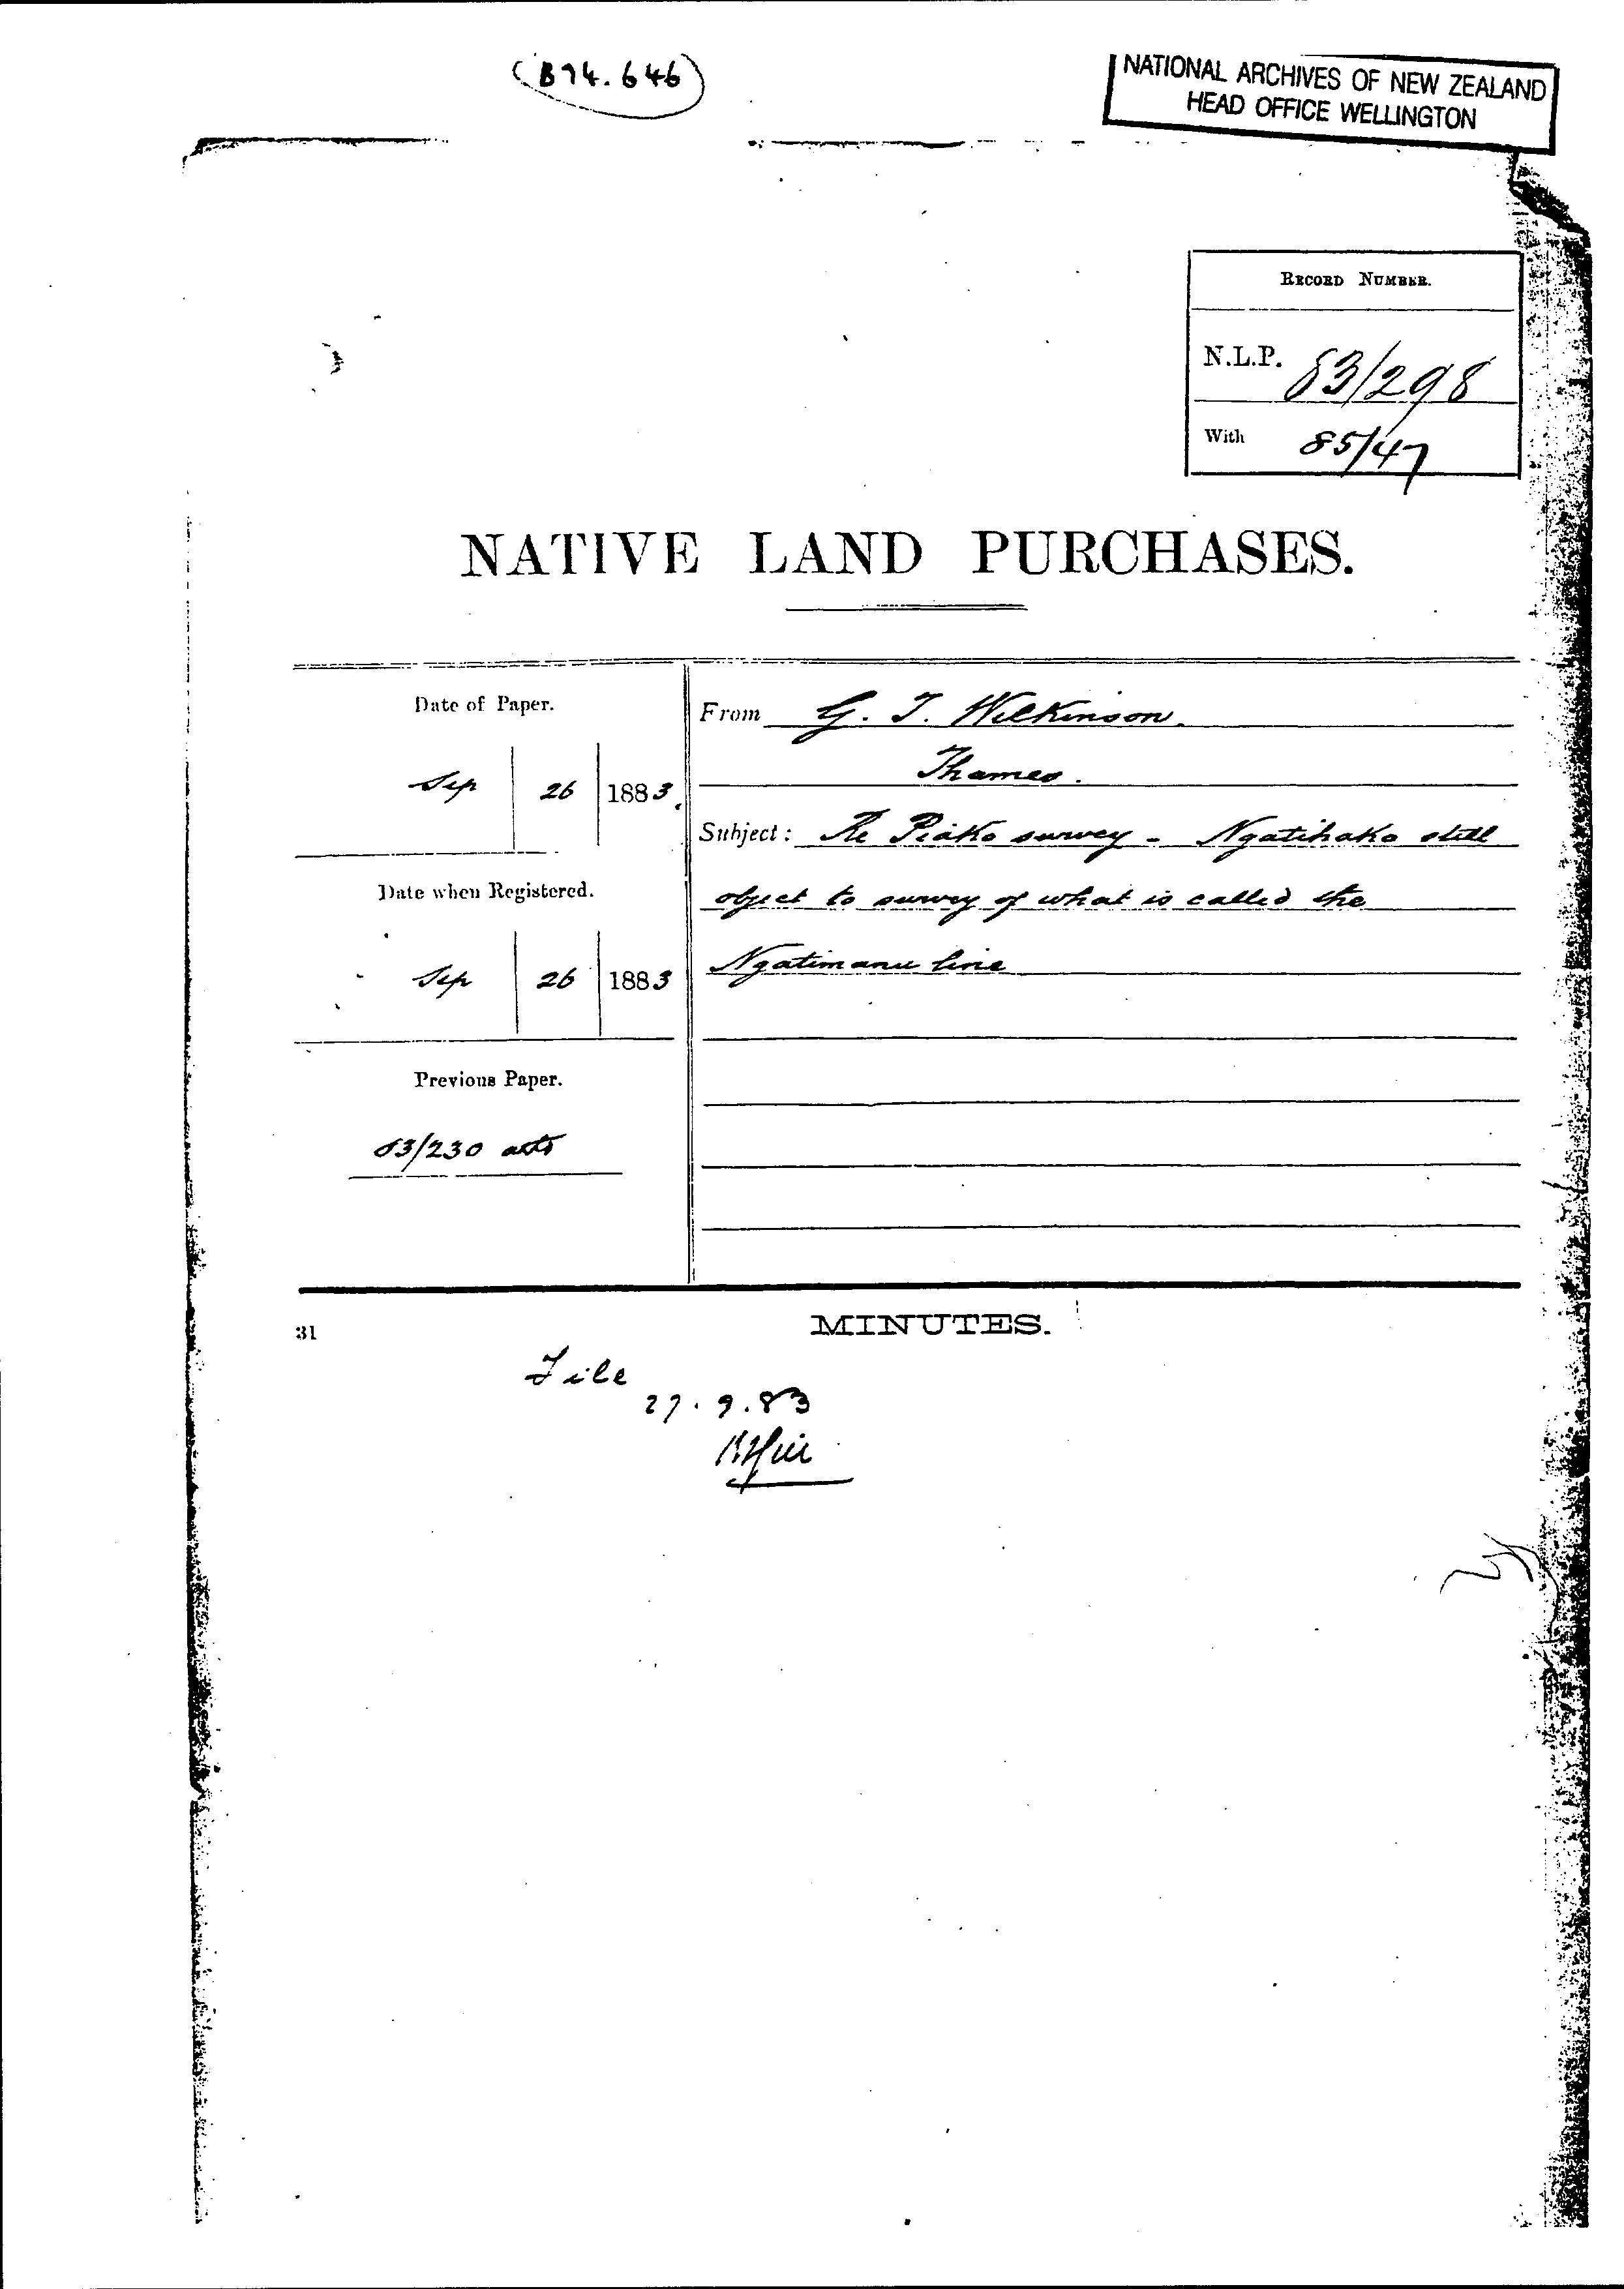 (B94.646)
NATIONAL ARCHIVES OF NEW ZEALAND
HEAD OFFICE WELLINGTON
RECORD NUMBER.
N.L.P. 83/298
With 85/47
NATIVE LAND PURCHASES.
Date of Paper.
Sep 26 1883.
Date when Registered.
Sep 26 1883
Previous Paper.
83/230
From G. T. Wilkinson.
Thames.
Subject: Re Piako survey - Ngatihako still
object to survey of what is called the
Ngatimanu line
31
MINUTES.
File
27.9.83